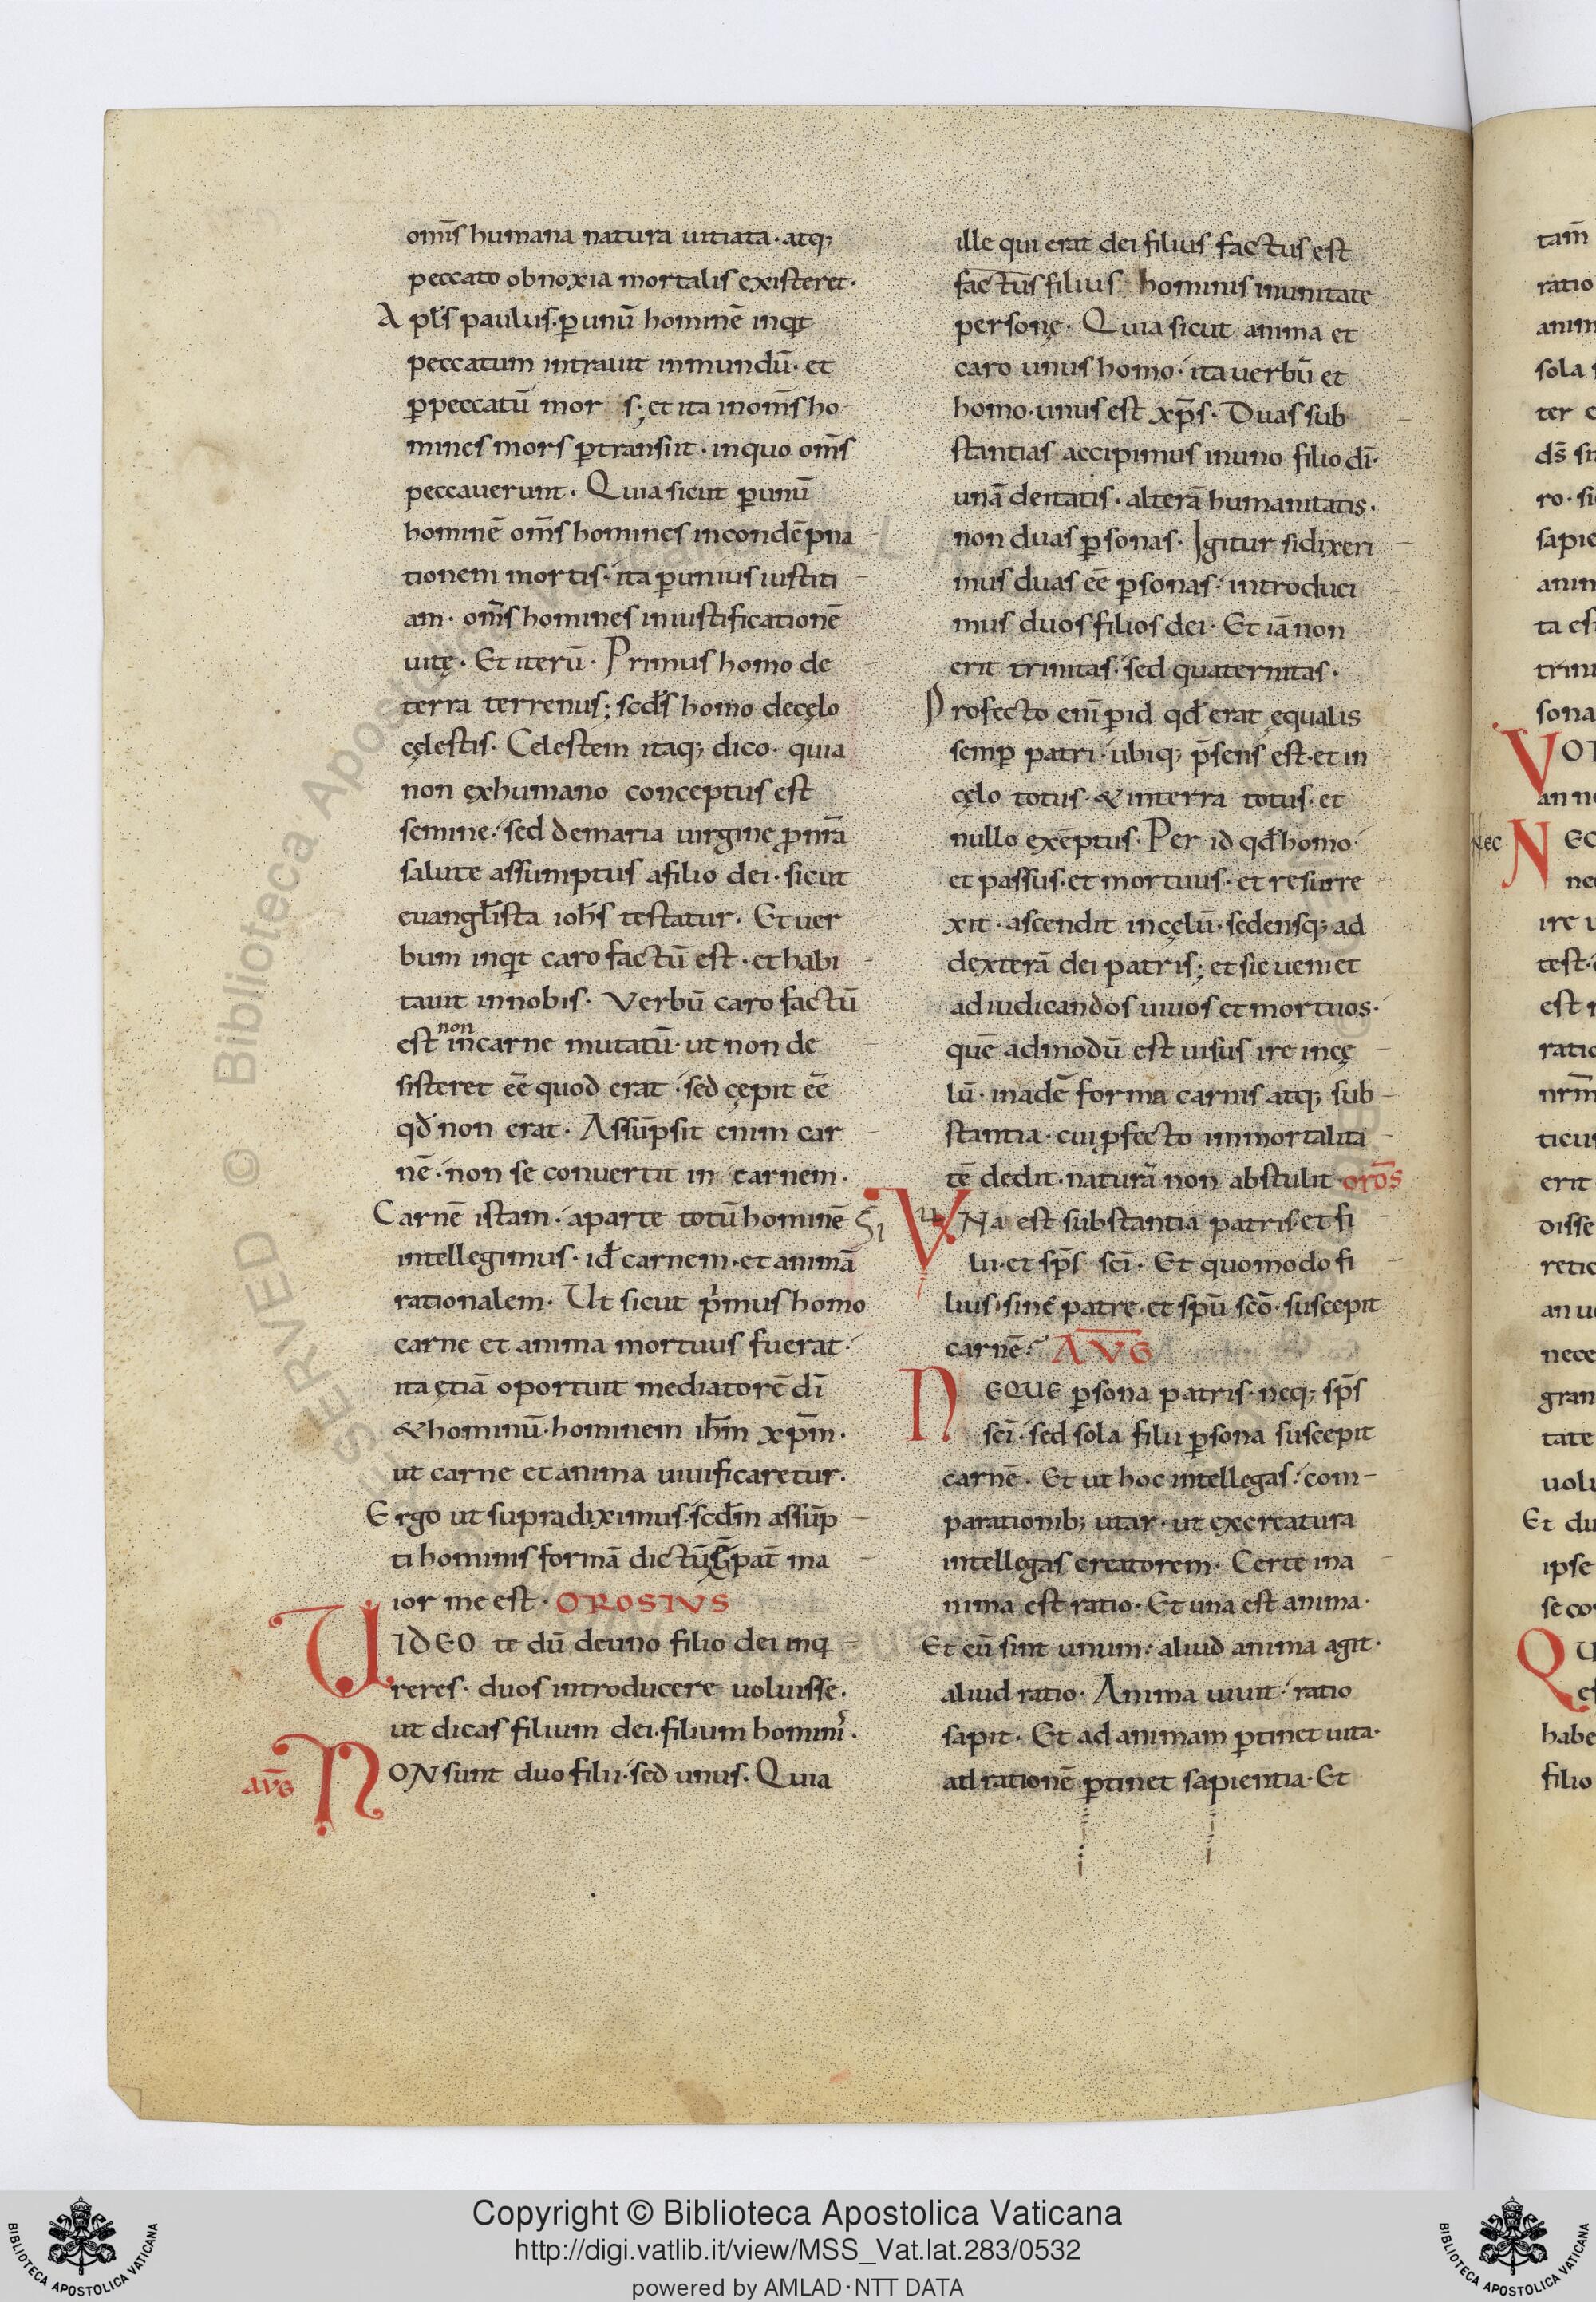 om̄s humana natura uitiata · atq;
peccato obnoxia mortalis existeret ·
A pl̄s paulus · p̱ unū hominē inqͥt
peccatum intrauit inmundū · et
p̱ peccatū mor s; et ita inom̄s ho
mines mors p̱transiit · inquo om̄s
peccauerunt · Quia sicut p̱unū
hominē om̄s homines incondēpna
tionem mortis · ita p̱unius iustiti
am · om̄s homines iniustificationē
uitę · Et iterū · Primus homo de
terra terrenus; scd̄s homo decęlo
cęlestis · Celestem itaq; dico · quia
non exhumano conceptus est
semine · sed demaria uirgine ꝓ nr̄a
salute assumptus afilio dei · sicut
euangl̄ista ioh̄s testatur · Et uer
bum inqͥt caro factū est · et habi
tauit innobis · Verbū caro factū
non
est incarne mutatū · ut non de
sisteret eē quod erat · sed cępit eē
qd̄ non erat · Assūpsit enim car
nē · non se conuertit in carnem ·
Carnē istam · aparte totū hominē
intellegimus · id̄ carnem · et animā
rationalem · Ut sicut pͥmus homo
carne et anima mortuus fuerat ·
ita ętiā oportuit mediatorē dī
& hominū · hominem ih̄m xp̄m ·
ut carne et anima uiuificaretur ·
Ergo ut supradiximus · scd̄m assūp
ti hominis formā dictū ē pat̄ ma
ior me est · OROSIVS
UIDEO te dū deuno filio dei inq
reres · duos introducere uoluisse ·
ut dicas filium dei · filium homini᷒ ·
aūg NON sunt duo filii · sed unus · Quia
ille qui erat dei filius factus est
factus filius hominis inunitate
personę · Quia sicut anima et
caro unus homo · ita uerbū et
homo · unus est xp̄s · Duas sub
stantias accipimus inuno filio dī ·
unā deitatis · alterā humanitatis ·
non duas p̱sonas · Igitur sidixeri
mus duas eē p̱sonas · introduci
mus duos filios dei · Et iā non
erit trinitas · sed quaternitas ·
Profecto eni̅ p̱ id qd̄ erat ęqualis
semp̱ patri · ubiq; p̄sens est · et in
cęlo totus · & interra totus · et
nullo exēptus · Per id qd̄ homo ·
et passus · et mortuus · et resurre
xit · ascendit incęlū · sedensq; ad
dexterā dei patris; et sic ueniet
ad iudicandos uiuos et mortuos ·
quē admodū est uisus ire incę
lū · inadē forma carnis atq; sub
stantia · cui ꝓfecto immortalita
tē dedit · naturā non abstulit · orōs
Si VNa est substantia patris · et fi
lii · et sp̄s sc̄i · Et quomodo fi
lius · sine patre · et spū scō · suscepit
carnē · AVG
NEQUE p̱sona patris · neq; sp̄s
sc̄i · sed sola filii p̱sona suscepit
carnē · Et ut hoc intellegas · com
parationib; utar · ut excreatura
intellegas creatorem · Certe ina
nima est ratio · Et una est anima ·
Et cū sint unum · aliud anima agit ·
aliud ratio · Anima uiuit · ratio
sapit · Et ad animam p̱tinet uita ·
ad rationē p̱tinet sapientia · Et
tam̄
ratio
anim
sola
ter
ds̄
ro · si
sapie
anim
ta est
trini
sona
VOT
an no
Nec NEC
nec
ire
test ·
est
ratio
nrm̄
ticu
erit
disse
retic
an
nece
gran
tate
uolu
Et du
ipse
se co
QU
es
habe
filio
SERVED © Biblioteca Apostolica Vaticana
Copyright © Biblioteca Apostolica Vaticana
http://digi.vatlib.it/view/MSS_Vat.lat.283/0532
powered by AMLAD·NTT DATA
BIBLIOTECA APOSTOLICA VATICANA
BIBLIOTECA APOSTOLICA VATICANA